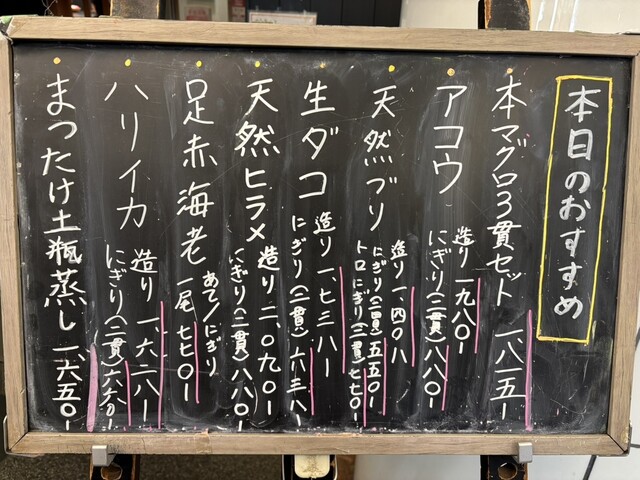 本日のおすすめ
本マグロ3貫セット 一、八一五ー
アコウ
造り 一九八〇ー
にぎり(二貫)八八〇ー
天然ブリ
造り 一、四〇八
にぎり(二貫)五五〇ー
トロにぎり(二貫)七七〇ー
生ダコ
造り 一、七三八ー
にぎり(二貫)六三八ー
天然ヒラメ
造り 二、〇九〇ー
にぎり(二貫)八八〇ー
足赤海老
あて/にぎり
一尾 七七〇ー
ハリイカ
造り 一、六二八ー
にぎり(二貫)六六〇ー
まつたけ土瓶蒸し 一、六五〇ー